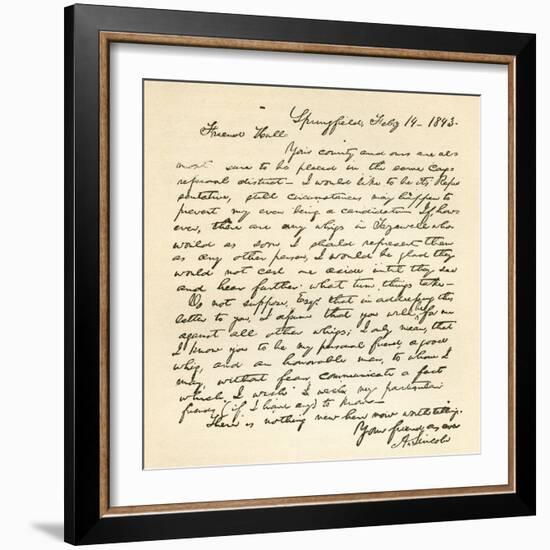 Springfield, Feby 14 - 1843.
Friend Hull
Your county and ours are al-
most sure to be placed in the same Cong-
ressional district - I would like to be its Repre
sentative, still circumstances may happen to
prevent my even being a candidate - If, how-
ever, there are any whigs in Tazewell who
would as soon I should represent them
as any other person, I would be glad they
would not cast me aside until they see
and hear farther what turn things take -
Do not suppose, Esqr. that in addressing this
letter to you, I assume that you will be for me
against all other whigs; I only mean, that
I know you to be my personal friend, a good
whig, and an honorable man, to whom I
may, without fear, communicate a fact
which I wish my particular
friends (if I have any) to know -
There is nothing new here now worth telling.
Your friend as ever
A. Lincoln